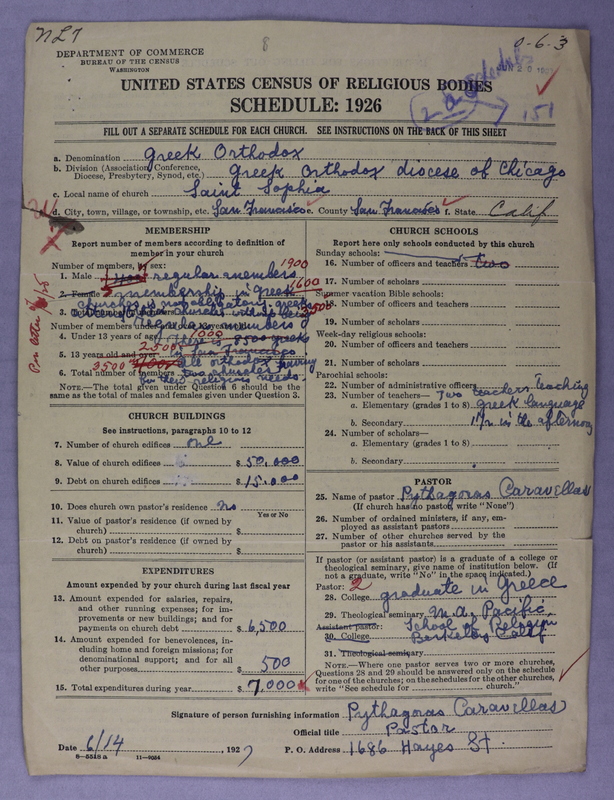 NLT
8
0-6-3
DEPARTMENT OF COMMERCE
BUREAU OF THE CENSUS
WASHINGTON
UNITED STATES CENSUS OF RELIGIOUS BODIES
SCHEDULE: 1926
151
FILL OUT A SEPARATE SCHEDULE FOR EACH CHURCH. SEE INSTRUCTIONS ON THE BACK OF THIS SHEET
a. Denomination Greek Orthodox
b. Division (Association, Conference, Diocese, Presbytery, Synod, etc.) Greek Orthodox diocese of Chicago
c. Local name of church Saint Sophia
d. City, town, village, or township, etc. San Francisco e. County San Francisco f. State Calif
MEMBERSHIP
Report number of members according to definition of member in your church
Number of members, by sex:
1900
1. Male regular members
1600
2. Female membership in Greek
churches is not obligatory, greeks
3500
Number of members under
4. Under 13 years of age 1000
There is 8500 greeks
5. 13 years old and over 2500 in San Francisco
6. Total number of members 3500 all orthodox having
two churches
for their religious needs.
NOTE.—The total given under Question 6 should be the same as the total of males and females given under Question 3.
CHURCH BUILDINGS
See instructions, paragraphs 10 to 12
7. Number of church edifices one
8. Value of church edifices $ 50,000
9. Debt on church edifices $ 15,000
10. Does church own pastor's residence? No
Yes or No
11. Value of pastor's residence (if owned by church) $
12. Debt on pastor's residence (if owned by church) $
EXPENDITURES
Amount expended by your church during last fiscal year
13. Amount expended for salaries, repairs, and other running expenses; for improvements or new buildings; and for payments on church debt $ 6,500
14. Amount expended for benevolences, including home and foreign missions; for denominational support; and for all other purposes $ 500
15. Total expenditures during year $ 7,000
CHURCH SCHOOLS
Report here only schools conducted by this church
Sunday schools:
16. Number of officers and teachers two
17. Number of scholars
Summer vacation Bible schools:
18. Number of officers and teachers
19. Number of scholars
Week-day religious schools:
20. Number of officers and teachers
21. Number of scholars
Parochial schools:
22. Number of administrative officers
23. Number of teachers— Two teachers teaching
a. Elementary (grades 1 to 8) greek language
b. Secondary 1½ in the afternoon
24. Number of scholars—
a. Elementary (grades 1 to 8)
b. Secondary
PASTOR
25. Name of pastor Pythagoras Caravellas
(If church has no pastor, write "None")
26. Number of ordained ministers, if any, employed as assistant pastors
27. Number of other churches served by the pastor or his assistants
If pastor (or assistant pastor) is a graduate of a college or theological seminary, give name of institution below. (If not a graduate, write "No" in the space indicated.)
Pastor: 2
28. College graduate in Greece
29. Theological seminary M.A. Pacific
Assistant pastor: School of Religion
30. College Berkeley Calif
31. Theological seminary
NOTE.—Where one pastor serves two or more churches, Questions 28 and 29 should be answered only on the schedule for one of the churches; on the schedules for the other churches, write "See schedule for ______ church."
Signature of person furnishing information Pythagoras Caravellas
Official title Pastor
Date 6/14, 1927
P. O. Address 1686 Hayes St.
8—5548a 11—9054